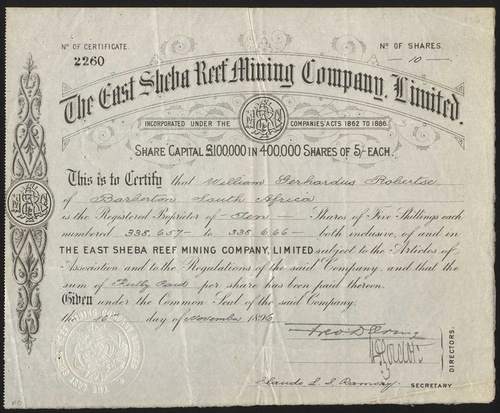 No OF CERTIFICATE.
2260
No OF SHARES.
— 10 —
The East Sheba Reef Mining Company, Limited.
INCORPORATED UNDER THE COMPANIES' ACTS 1862 TO 1886
SHARE CAPITAL £100000 IN 400,000 SHARES OF 5/- EACH.
This is to Certify that William Gerhardus Robertse
of Barberton South Africa
is the Registered Proprietor of — Ten — Shares of Five Shillings each
numbered 338,657 — to 338,666 — both inclusive, of and in
THE EAST SHEBA REEF MINING COMPANY, LIMITED subject to the Articles of
Association and to the Regulations of the said Company, and that the
sum of Fully Paid per share has been paid thereon.
Given under the Common Seal of the said Company.
the day of November 1896
DIRECTORS.
Claude L. S. SECRETARY.